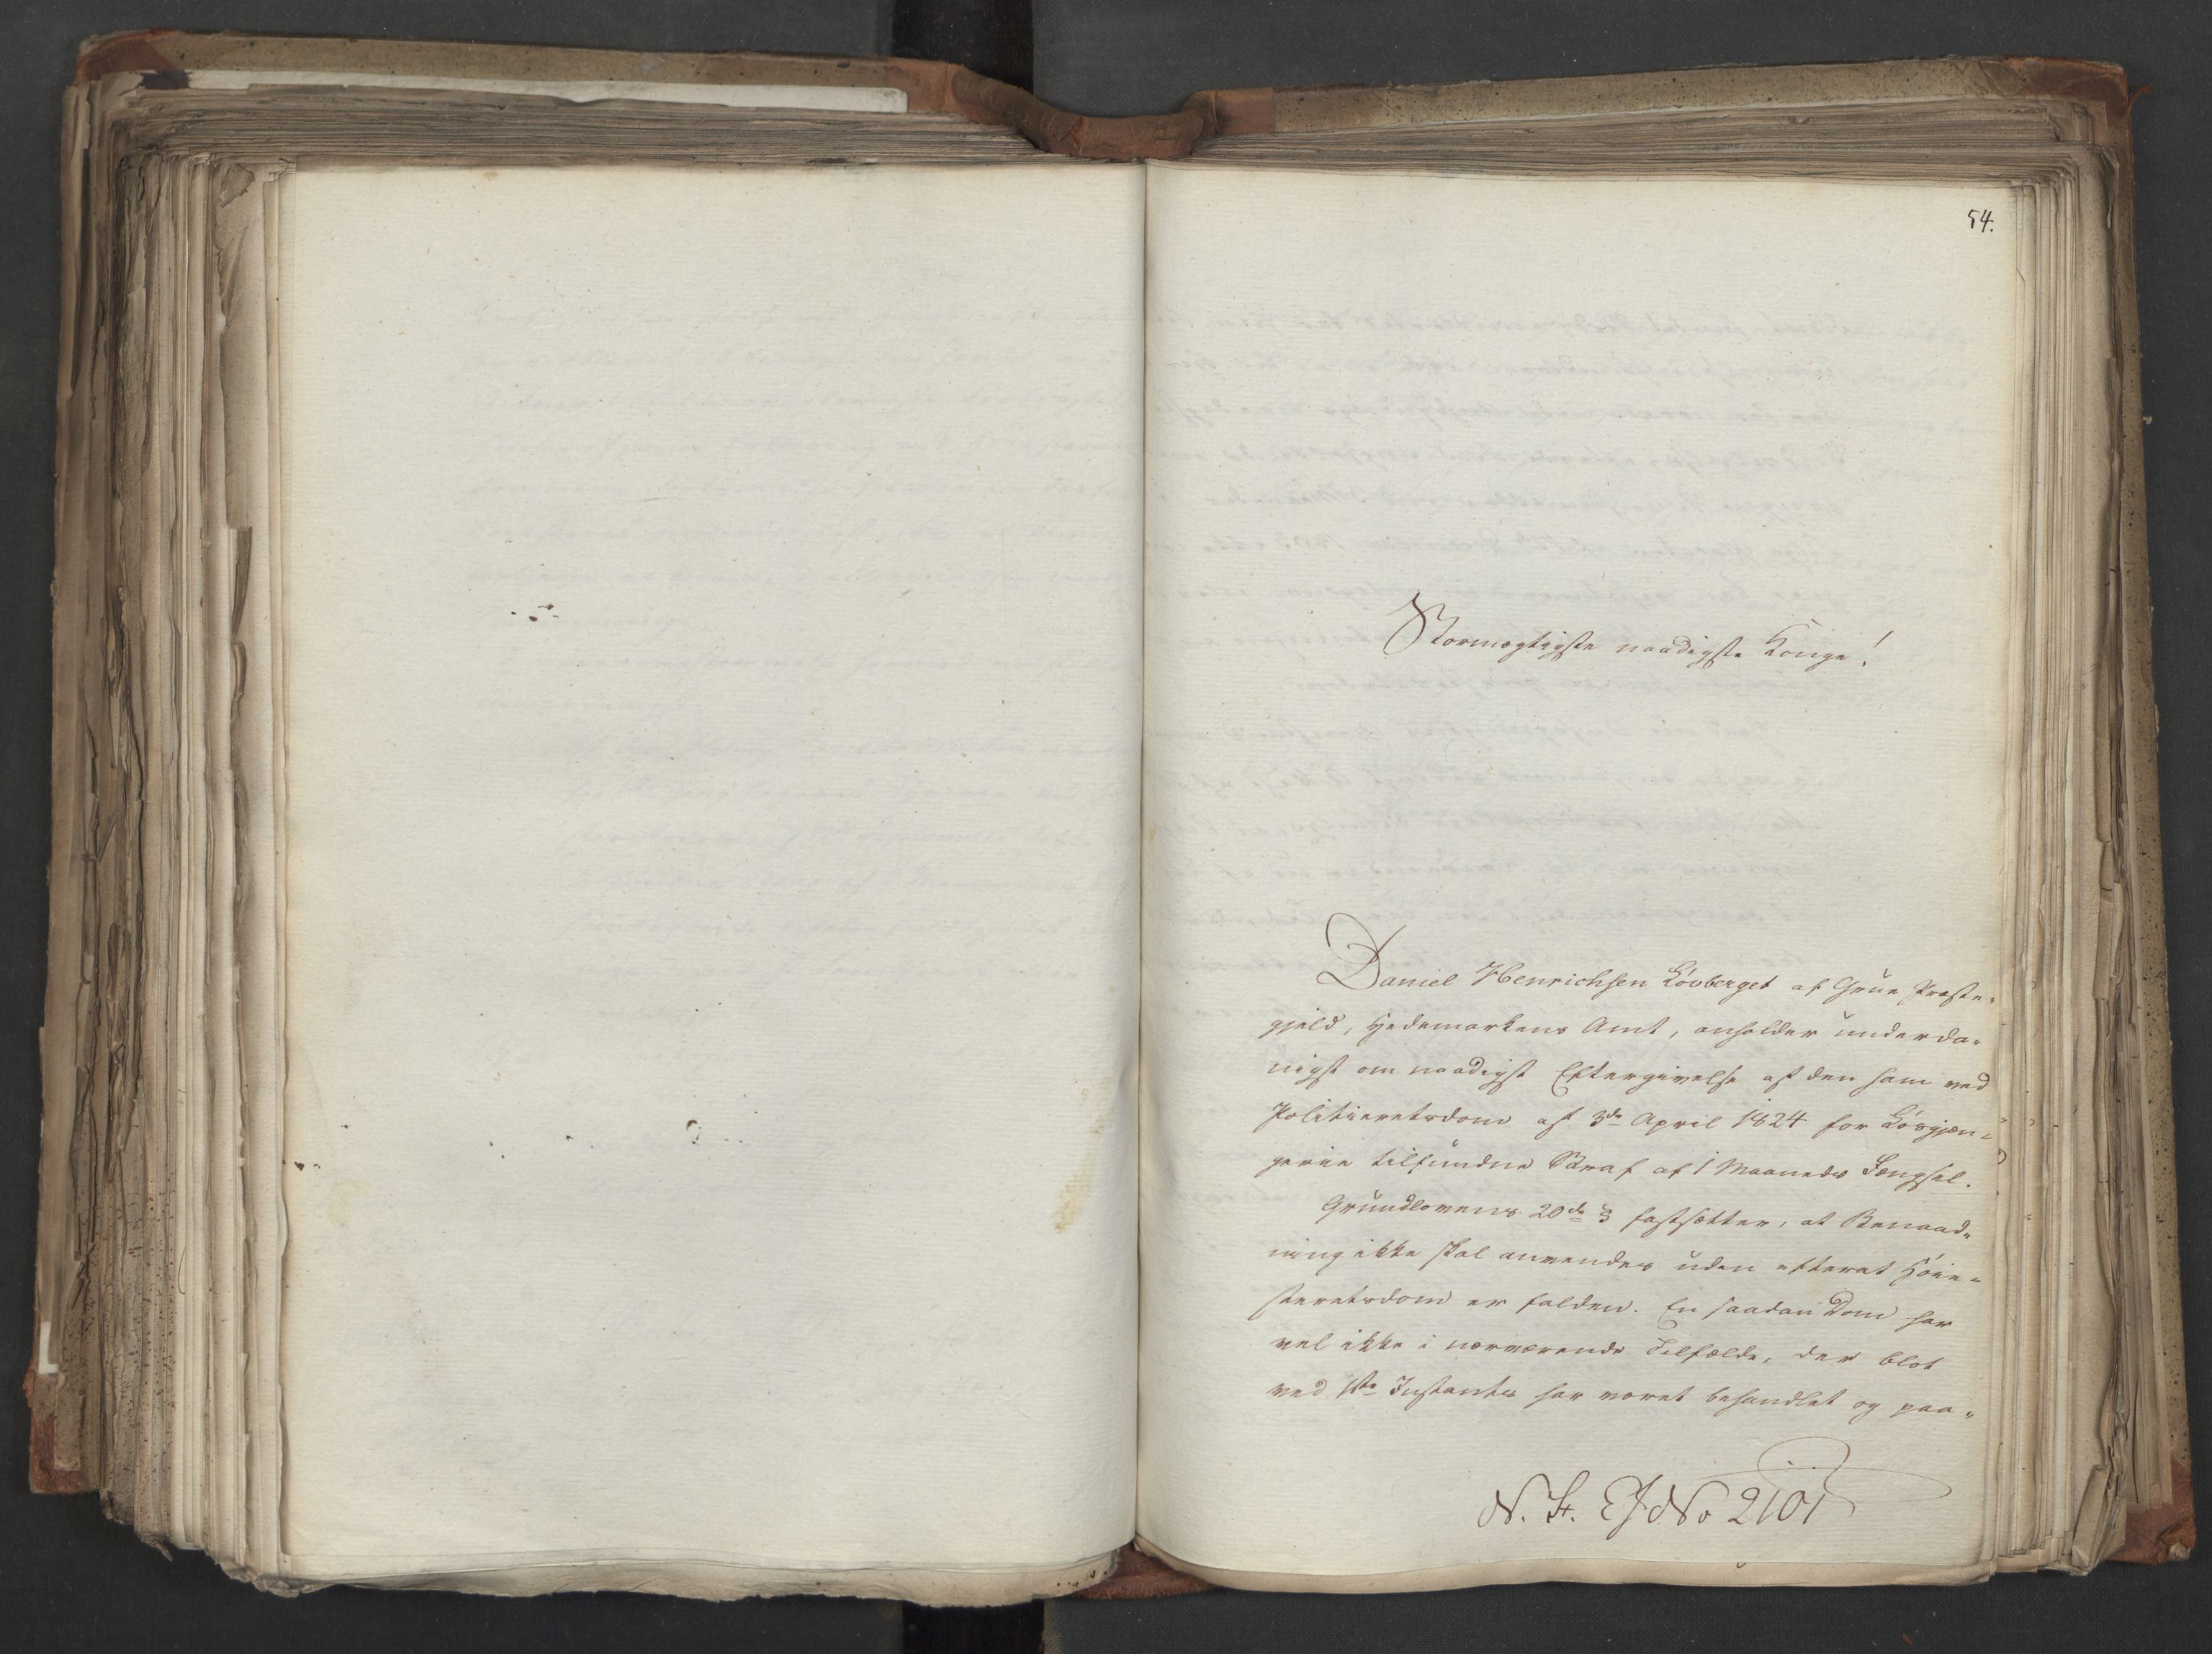 54.
Stormægtigste naadigste Konge!
Daniel Henrichsen Løvberget af Grue Præste-
gjeld, Hedemarkens Amt, anholder underda-
nigst om naadigst Eftergivelse af den ham ved
Politieretsdom af 3de April 1824 for Løsgjæn-
gerie tilfundne Straf af 1 Maaneds Fængsel.
Grundlovens 20de § fastsætter, at Benaad-
ning ikke skal anvendes uden efterat Høie-
steretsdom er falden. En saadan Dom har
vel ikke i nærværende Tilfælde, der blot
ved 1ste Instants har været behandlet og paa-
No 2101